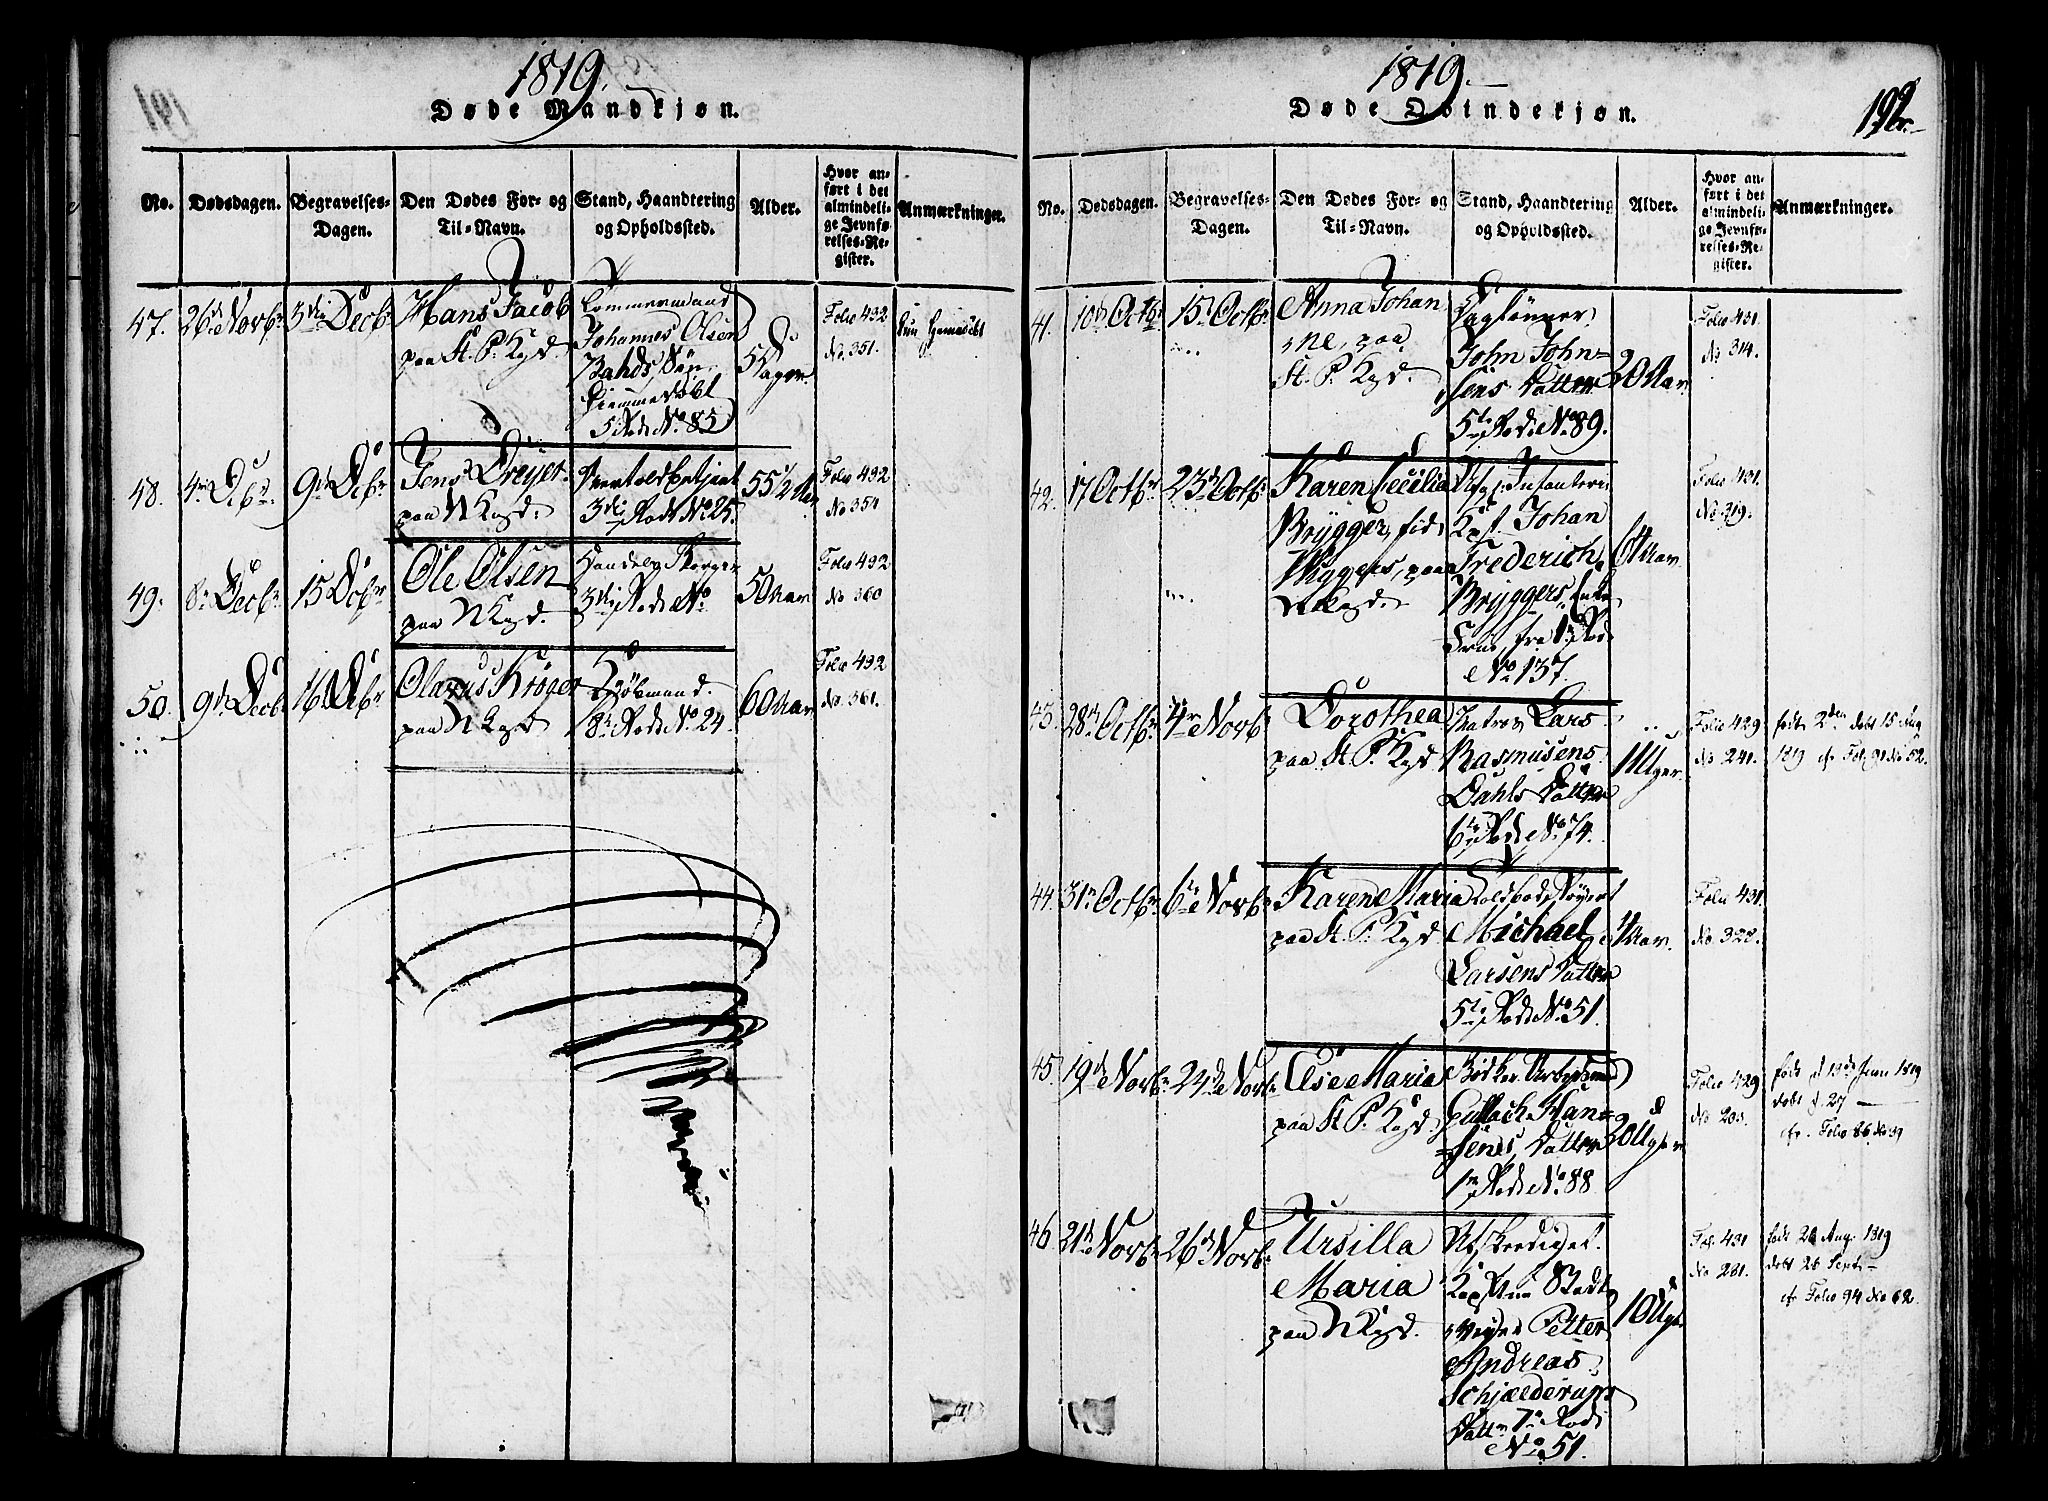 1819.
Døde Mandkjøn.
No.
Dødsdagen.
Begravelses-
Dagen.
Den Dødes For- og
Til-Navn.
Stand, Haandtering
og Opholdssted.
Alder.
Hvor an-
ført i det
almindeli-
ge Jevnfø-
relses-Re-
gister.
Anmærkninger.
47. 26de Novbr 3die Decbr
Hans Jacob
paa St. P. Kgd.
Tømmermand
Johannes Olsen
Søn,
hjemmedøbt
5 Rode No. 85
5 Dager
Folio 432
No. 351.
48. 4de Dcbr. 9de Dcbr
Jens Dreyer
paa N Kgd.
3die Rode No. 25.
55 1/2 Aar
Folio 432
No 354
49. 8de Decbr 15 Dcbr
Ole Olsen
paa N Kgd.
Handels Borger
3die Rode No
50 Aar
Folio 432
No 360
50. 9de Decbr 16 Dcbr
Olaus Krøger
paa N Kgd
Kjøbmand.
8de Rode No. 24.
60 Aar
Folio 432
No. 361.
1819.
Døde Qvindekjøn.
192.
No.
Dødsdagen.
Begravelses-
Dagen.
Den Dødes For- og
Til-Navn.
Stand, Haandtering
og Opholdssted.
Alder.
Hvor an-
ført i det
almindeli-
ge Jevnfø-
relses-Re-
gister.
Anmærkninger.
41. 10de Octbr 15de Octbr
Anna Johan
ne, paa
St. P. Kgd.
Daglønner
John John=
sens Datter
5te Rode No. 89.
20 Aar
Folio 431
No 314.
42. 17 Octbr 23de Octbr
Karen Cecilia
Brygger, fød
Wiggers, paa
Kgd.
Infanteri
Kapt. Johan
Frederich
Bryggers Enke
fra 1ste Rode
No. 137.
Aar
Folio 431
No. 319.
43. 28de Octbr 4de Novbr
Dorothea
paa St. P. Kgd
Matros Lars
Rasmusens
Dahls Datter
6te Rode No. 74.
11 Uger
Folio 429
No 241.
født 2den døbt 15 Aug
1819 cfr Fol. 91 No 52.
44. 31te Octbr 6te Novbr
Karen Maria
paa St. P. Kgd
Michael
Larsens Datter
5te Rode No. 51.
Aar
Folio 431
No. 328.
45. 19de Novbr 24de Novbr
Else Maria
paa St P. Kgd.
Gullach Han=
sens, Datter
1ste Rode No. 88
20 Uger
Folio 429
No 203.
født d 13de Juni 1819
døbt d. 27 —
cfr. Folio 86 No 39
46. 21de Novbr 26de Novbr
Ursilla
Maria
paa N Kgd.
Afskediget
Petter
Andreas
Schjælderups
Datter 7de Rode
No. 51.
10 Uger
Fol. 431
No 281.
født 26 Aug. 1819
døbt 26 Septr —
cfr Folio 94 No 62.